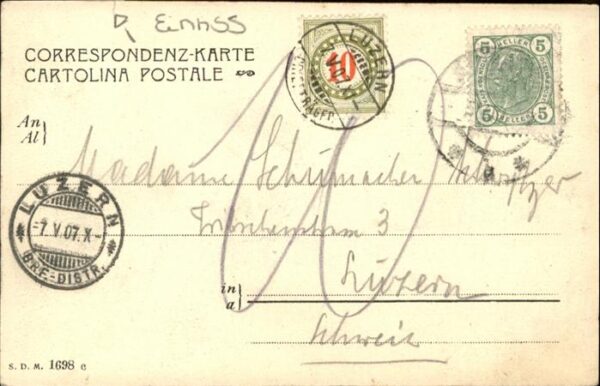 Einass
CORRESPONDENZ-KARTE
CARTOLINA POSTALE
10
LUZERN
5 HELLER 5
5 HELLER 5
An
Al
Madame Schumacher
3
Luzern
in
a
Schweiz
LUZERN
-7.V.07.X-
BRF.-DISTR.
10
S. D. M. 1698 c